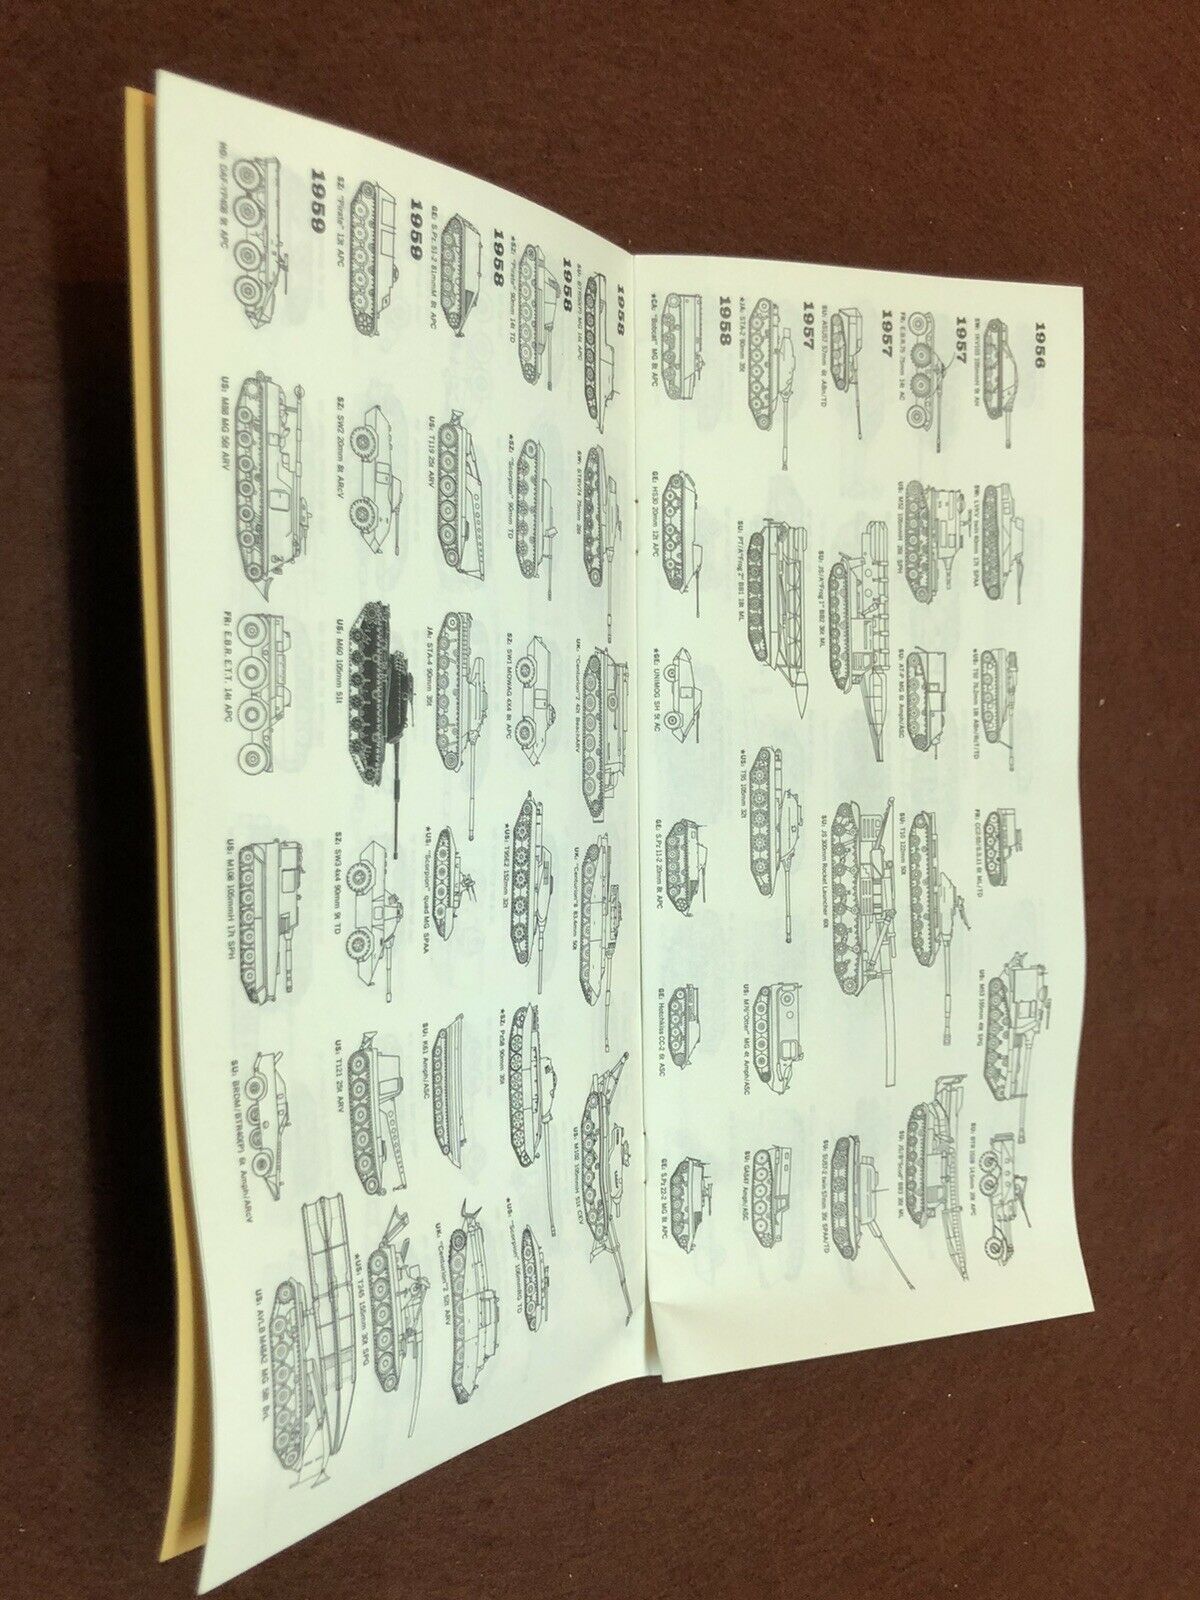 1956
SW: IKV103 105mmH 9t AH
SW: LVKV twin 40mm 17t SPAA
*US: T92 76.2mm 18t Abn/ReT/TD
US: M53 155mm 45t SPG
SU: BTR152B 14.5mm 10t APC
1957
FR: E.B.R.75 75mm 14t AC
US: M52 105mm 26t SPH
SU: AT-P MG 6t Amph/ASC
SU: T10 122mm 50t
SU: JS/B"Scud" BB3 39t ML
1957
SU: ASU57 57mm 6t ABn/TD
SU: JS/A"Frog 1" BB2 36t ML
SU: JS 300mm Rocket Launcher 60t
SU: ZSU57-2 twin 57mm 35t SPAA/TD
1957
*JA: STA-2 90mm 30t
SU: PT/A"Frog 2" BB1 18t ML
*US: T95 105mm 32t
US: M76"Otter" MG 4t Amph/ASC
SU: GAS47 Amph/ASC
1958
*CA: "Bobcat" MG 8t APC
GE: HS30 20mm 12t APC
*GE: UNIMOG SH 5t AC
GE: S.Pz 11-2 20mm 8t APC
GE: Hotchkiss CC-2 6t ASC
GE: S.Pz 22-2 MG 8t APC
1958
SU: BTR50(P) MG 14t APC
SW: STRV74 75mm 26t
UK: "Centurion"2 42t Beac/ARV
UK: "Centurion"8 83.4mm 50t
US: M102 105mmH 51t CEV
1958
*SZ: "Pirate" 90mm 14t TD
*SZ: "Scorpion" 90mm TD
SZ: SW1 MOWAG 4X4 8t APC
*US: T95E2 105mm 32t
*SZ: Pz58 90mm 35t
*US: "Scorpion" 106mmRG TD
1958
GE: S.Pz. 51-2 81mmM 8t APC
US: T119 25t ARV
JA: STA-4 90mm 30t
*US: "Scorpion" quad MG SPAA
SU: K61 Amph/ASC
UK: "Centurion"2 52t ARV
1959
SZ: "Pirate" 13t APC
SZ: SW2 20mm 8t ARcV
US: M60 105mm 51t
SZ: SW3 4x4 90mm 9t TD
US: T121 25t ARV
*US: T245 155mm 30t SPG
1959
HO: DAF-YP408 9t APC
US: M88 MG 56t ARV
FR: E.B.R. E.T.T. 14t APC
US: M108 105mmH 17t SPH
SU: BRDM/BTR40(P) 6t Amph/ARcV
US: AVLB M48A2 MG 58t BrL